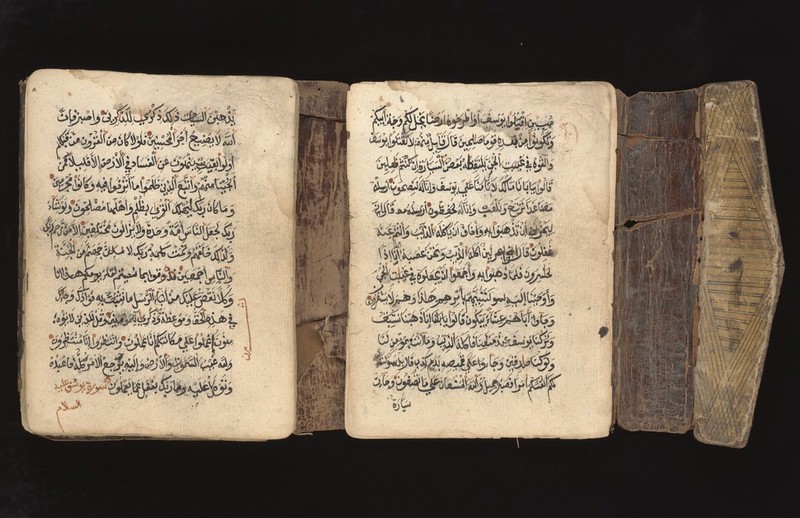 مبين اقتلوا يوسف او اطرحوه ارضا يخل لكم وجه ابيكم
وتكونوا من بعده قوما صالحين قال قايل منهم لا تقتلوا يوسف
والقوه في غيبت الجب يلتقطه بعض السيارة ان كنتم فعلين
قالوا يابانا مالك لا تامنا على يوسف وانا له لنصحون ارسله
معنا غدا يرتع ويلعب وانا له لحفظون قال اني
ليحزنني ان تذهبوا به واخاف ان ياكله الذيب وانتم عنه
غفلون قالوا لين اكله الذيب ونحن عصبة انا اذا
لخسرون فلما ذهبوا به واجمعوا ان يجعلوه في غيبت الجب
واوحينا اليه لتنبينهم بامرهم هذا وهم لا يشعرون
وجاو اباهم عشاء يبكون قالوا يابانا انا ذهبنا نستبق
وتركنا يوسف عند متاعنا فاكله الذيب وما انت بمومن لنا
ولو كنا صدقين وجاو على قميصه بدم كذب قال بل سولت
لكم انفسكم امرا فصبر جميل والله المستعان على ما تصفون وجات
سيارة
يذهبن السيات ذلك ذكرى للذكرين واصبر فان
الله لا يضيع اجر المحسنين فلولا كان من القرون من قبلكم
اولوا بقية ينهون عن الفساد في الارض الا قليلا ممن
انجينا منهم واتبع الذين ظلموا ما اترفوا فيه وكانوا مجرمين
وما كان ربك ليهلك القرى بظلم واهلها مصلحون ولو شاء
ربك لجعل الناس امة وحدة ولا يزالون مختلفين الا من رحم ربك
ولذلك خلقهم وتمت كلمة ربك لاملان جهنم من الجنة
والناس اجمعين
وكلا نقص عليك من انباء الرسل ما نثبت به فوادك وجاك
في هذه الحق وموعظة وذكرى للمومنين وقل للذين لا يومنـ
ـون اعملوا على مكانتكم انا عملون وانتظروا انا منتظرون
ولله غيب السموت والارض واليه يرجع الامر كله فاعبده
وتوكل عليه وما ربك بغفل عما تعملون سورة يوسف عليه
السلام